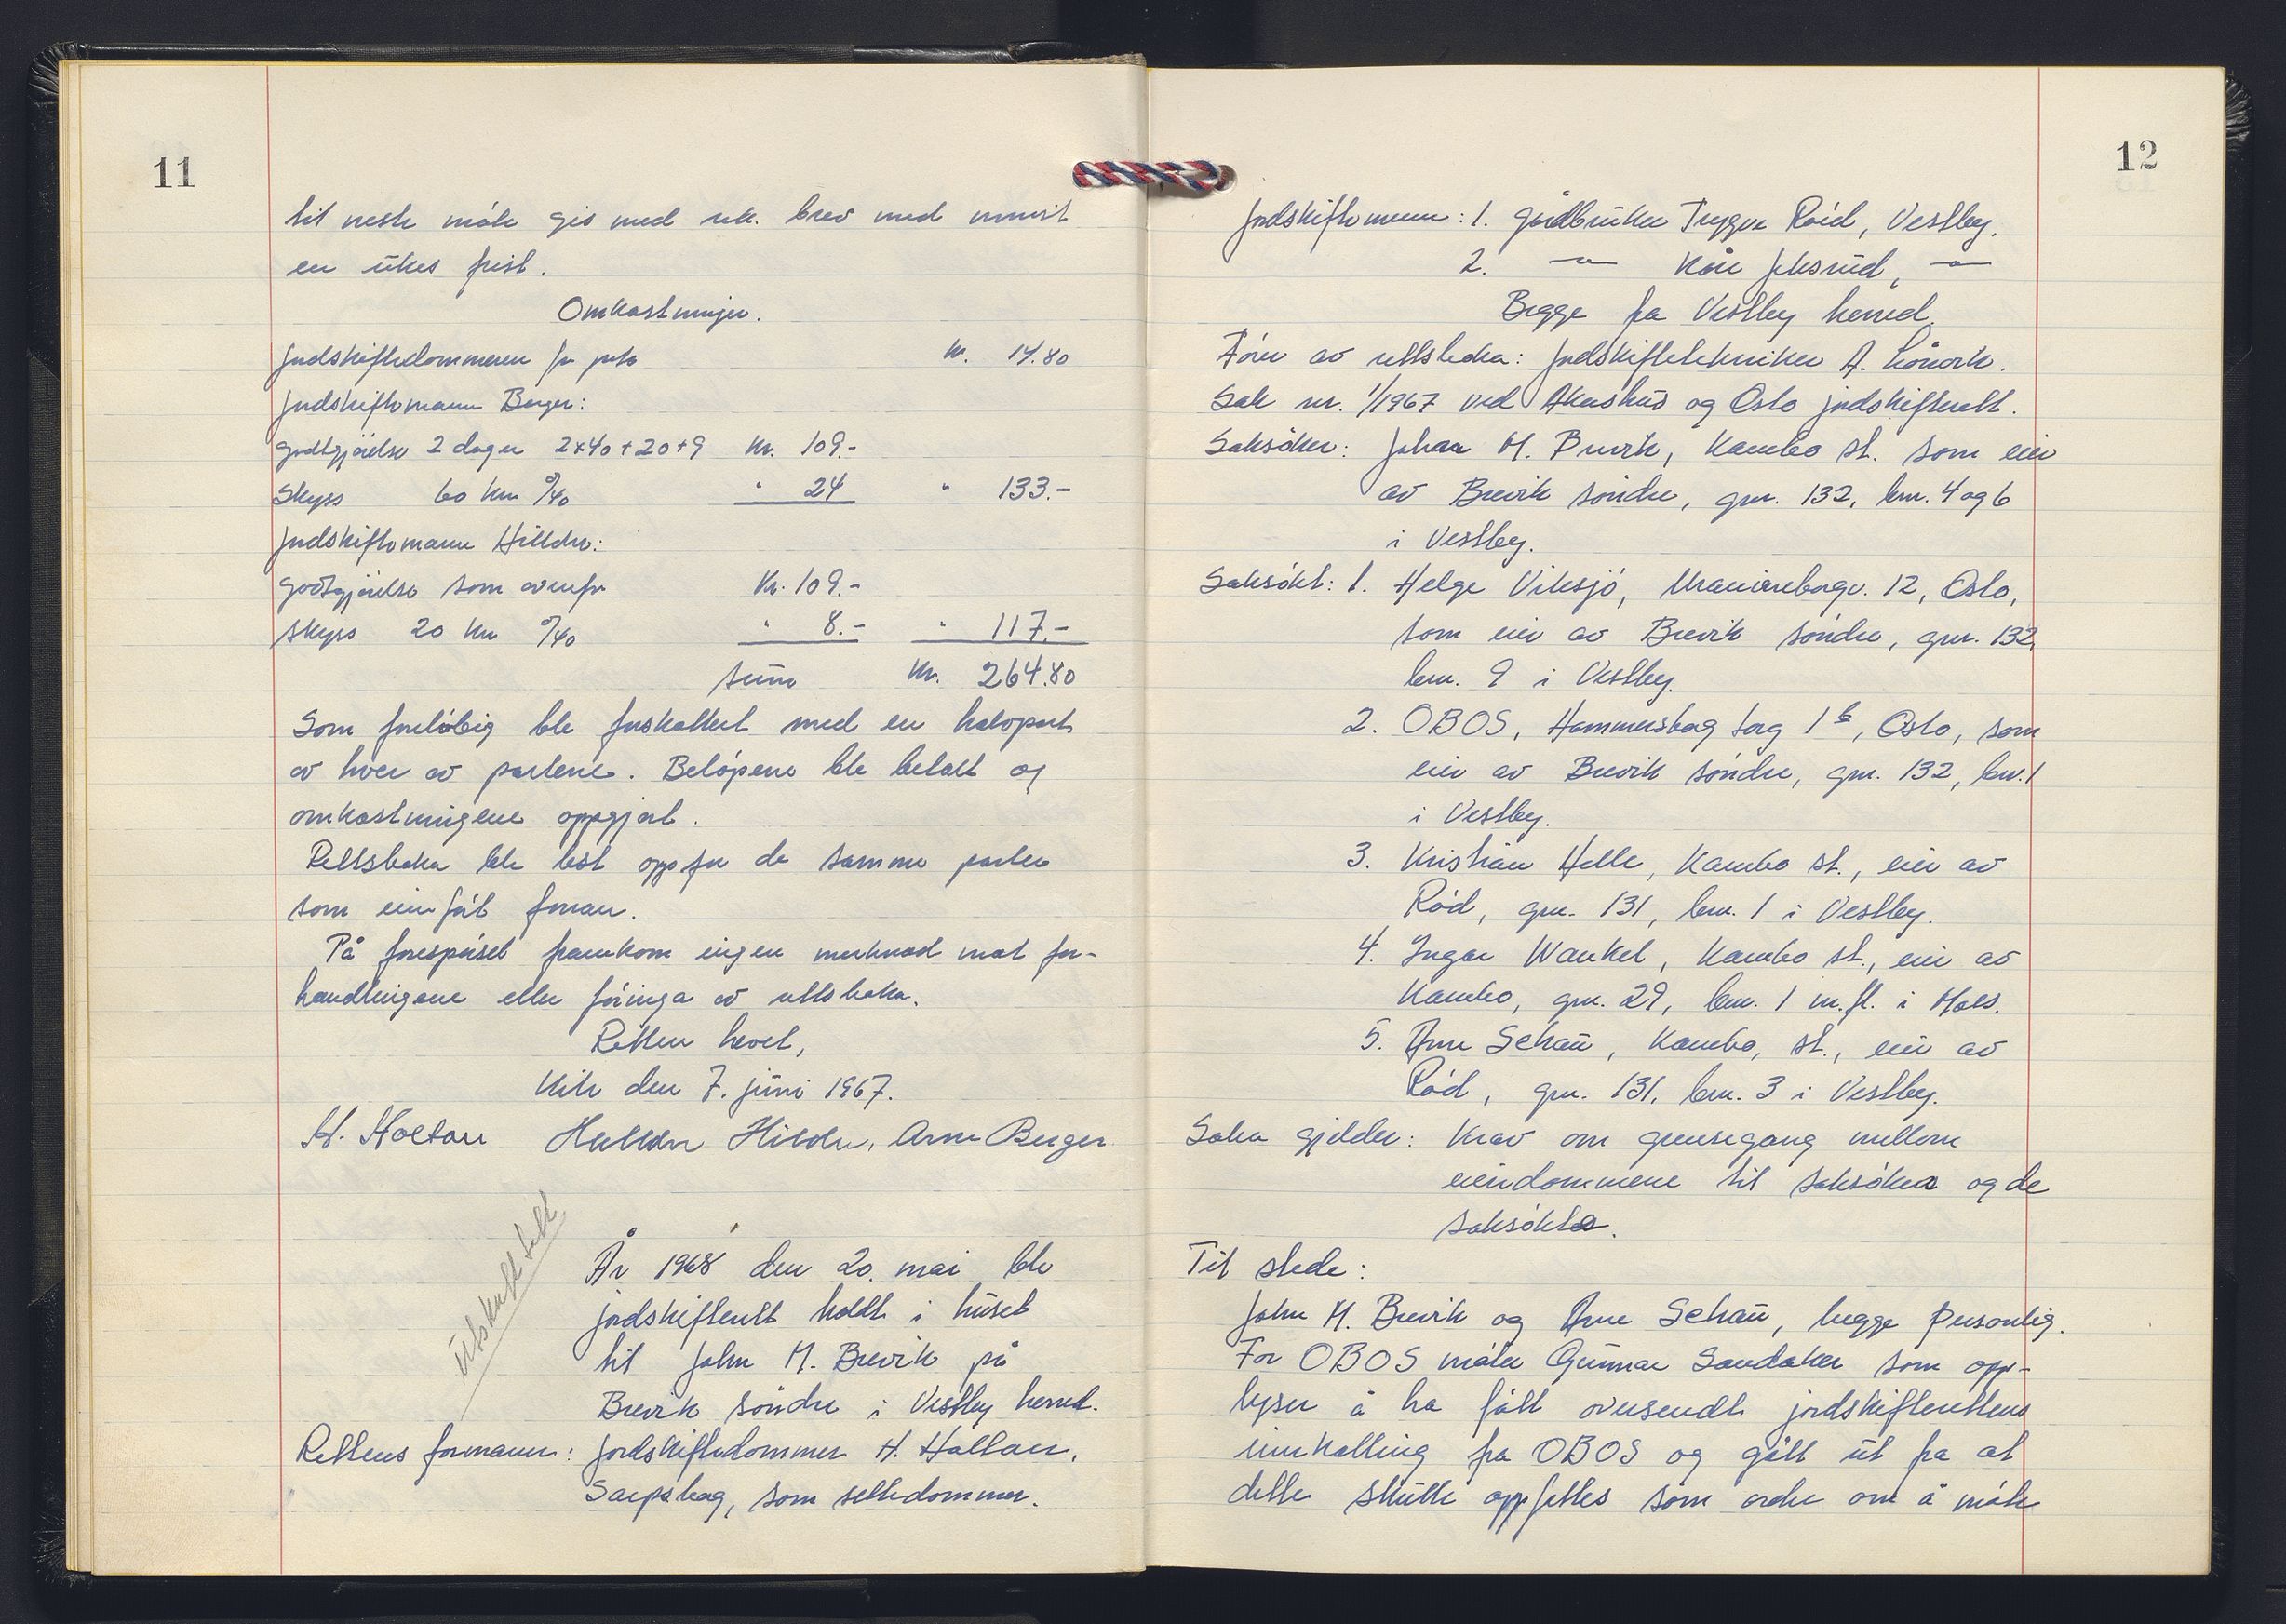 11
til neste møte gis med rek. brev med minst
en ukes frist.
Omkostninger.
Jordskiftedommeren for porto kr. 14.80
Jordskiftemann Berger:
godtgjørelse 2 dager 2x40+20+9 kr. 109.-
Skyss 60 km %40 " 24 " 133.-
Jordskiftemann Hilldre:
godtgjørelse som ovenfor kr. 109.-
skyss 20 km %40 " 8.- " 117.-
sum kr. 264.80
Som foreløbig ble forskottert med en halvpart
av hver av partene. Beløpene ble betalt og
omkostningene oppgjort.
Rettsboka ble lest opp for de samme parter
som innført foran.
På forespørsel framkom ingen merknad mot for-
handlingene eller føringa av rettsboka.
Retten hevet,
Vik den 7. juni 1967.
H. Holtan Halldor Hildre, Arne Berger
Utskrift tatt
År 1968 den 20. mai ble
jordskifterett holdt i huset
til John M. Brevik på
Brevik søndre i Vestby herred.
Rettens formann: jordskiftedommer H. Holtan,
Sarpsborg, som settedommer.
12
Jordskiftemenn: 1. gårdbruker Trygve Røed, Vestby.
2. —"— Kåre Jeksrud, —"—
Begge fra Vestby herred.
Fører av rettsboka: jordskiftetekniker A. Lønvik.
Sak nr. 1/1967 ved Akershus og Oslo jordskifterett.
Saksøker: Johan M. Brevik, Kambo st. som eier
av Brevik søndre, gnr. 132, bnr. 4 og 6
i Vestby.
Saksøkt: 1. Helge Viksjø, Uranienborgv. 12, Oslo,
som eier av Brevik søndre, gnr. 132,
bnr. 9 i Vestby.
2. OBOS, Hammersborg torg 1 b, Oslo, som
eier av Brevik søndre, gnr. 132, bnr. 1
i Vestby.
3. Kristian Helle, Kambo st., eier av
Rød, gnr. 131, bnr. 1 i Vestby.
4. Ingar Wankel, Kambo st., eier av
Kambo, gnr. 29, bnr. 1 m.fl. i Moss.
5. Arne Schau, Kambo, st., eier av
Rød, gnr. 131, bnr. 3 i Vestby.
Saka gjelder: Krav om grensegang mellom
eiendommene til saksøker og de
saksøkte.
Til stede:
John M. Brevik og Arne Schau, begge personlig.
For OBOS møter Gunnar Sandaker som opp-
lyser å ha fått oversendt jordskifterettens
innkalling fra OBOS og gått ut fra at
dette skulle oppfattes som ordre om å møte